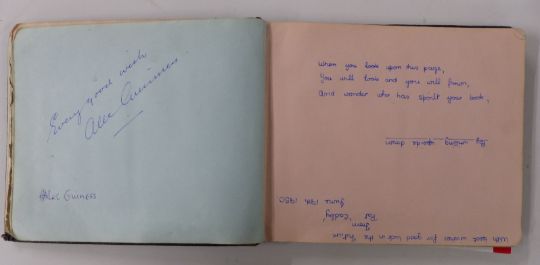 Every good wish
Alec Guinness
Alec Guiness
When you look upon this page,
You will look and you will frown,
And wonder who has spoilt your book,
By writing upside down
With best wishes for good luck in the future
from
Pat
June 13th, 1950